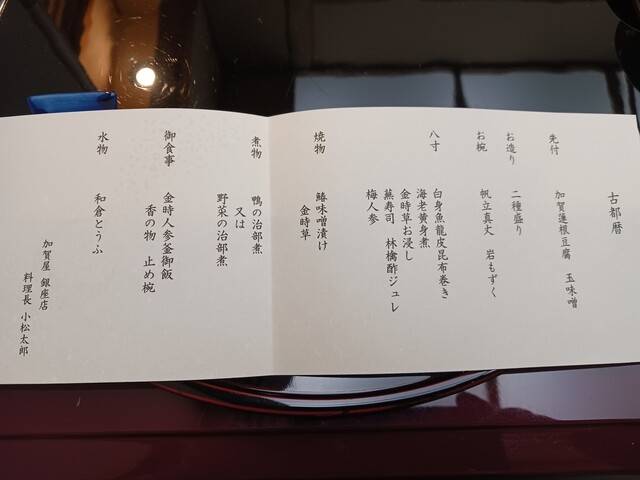 古都暦
先付
加賀蓮根豆腐 玉味噌
お造り
二種盛り
お椀
帆立真丈 岩もずく
八寸
白身魚龍皮昆布巻き
海老黄身煮
金時草お浸し
蕪寿司 林檎酢ジュレ
梅人参
焼物
鰆味噌漬け
金時草
煮物
鴨の治部煮
又は
野菜の治部煮
御食事
金時人参釜御飯
香の物 止め椀
水物
和倉とうふ
加賀屋 銀座店
料理長 小松太郎